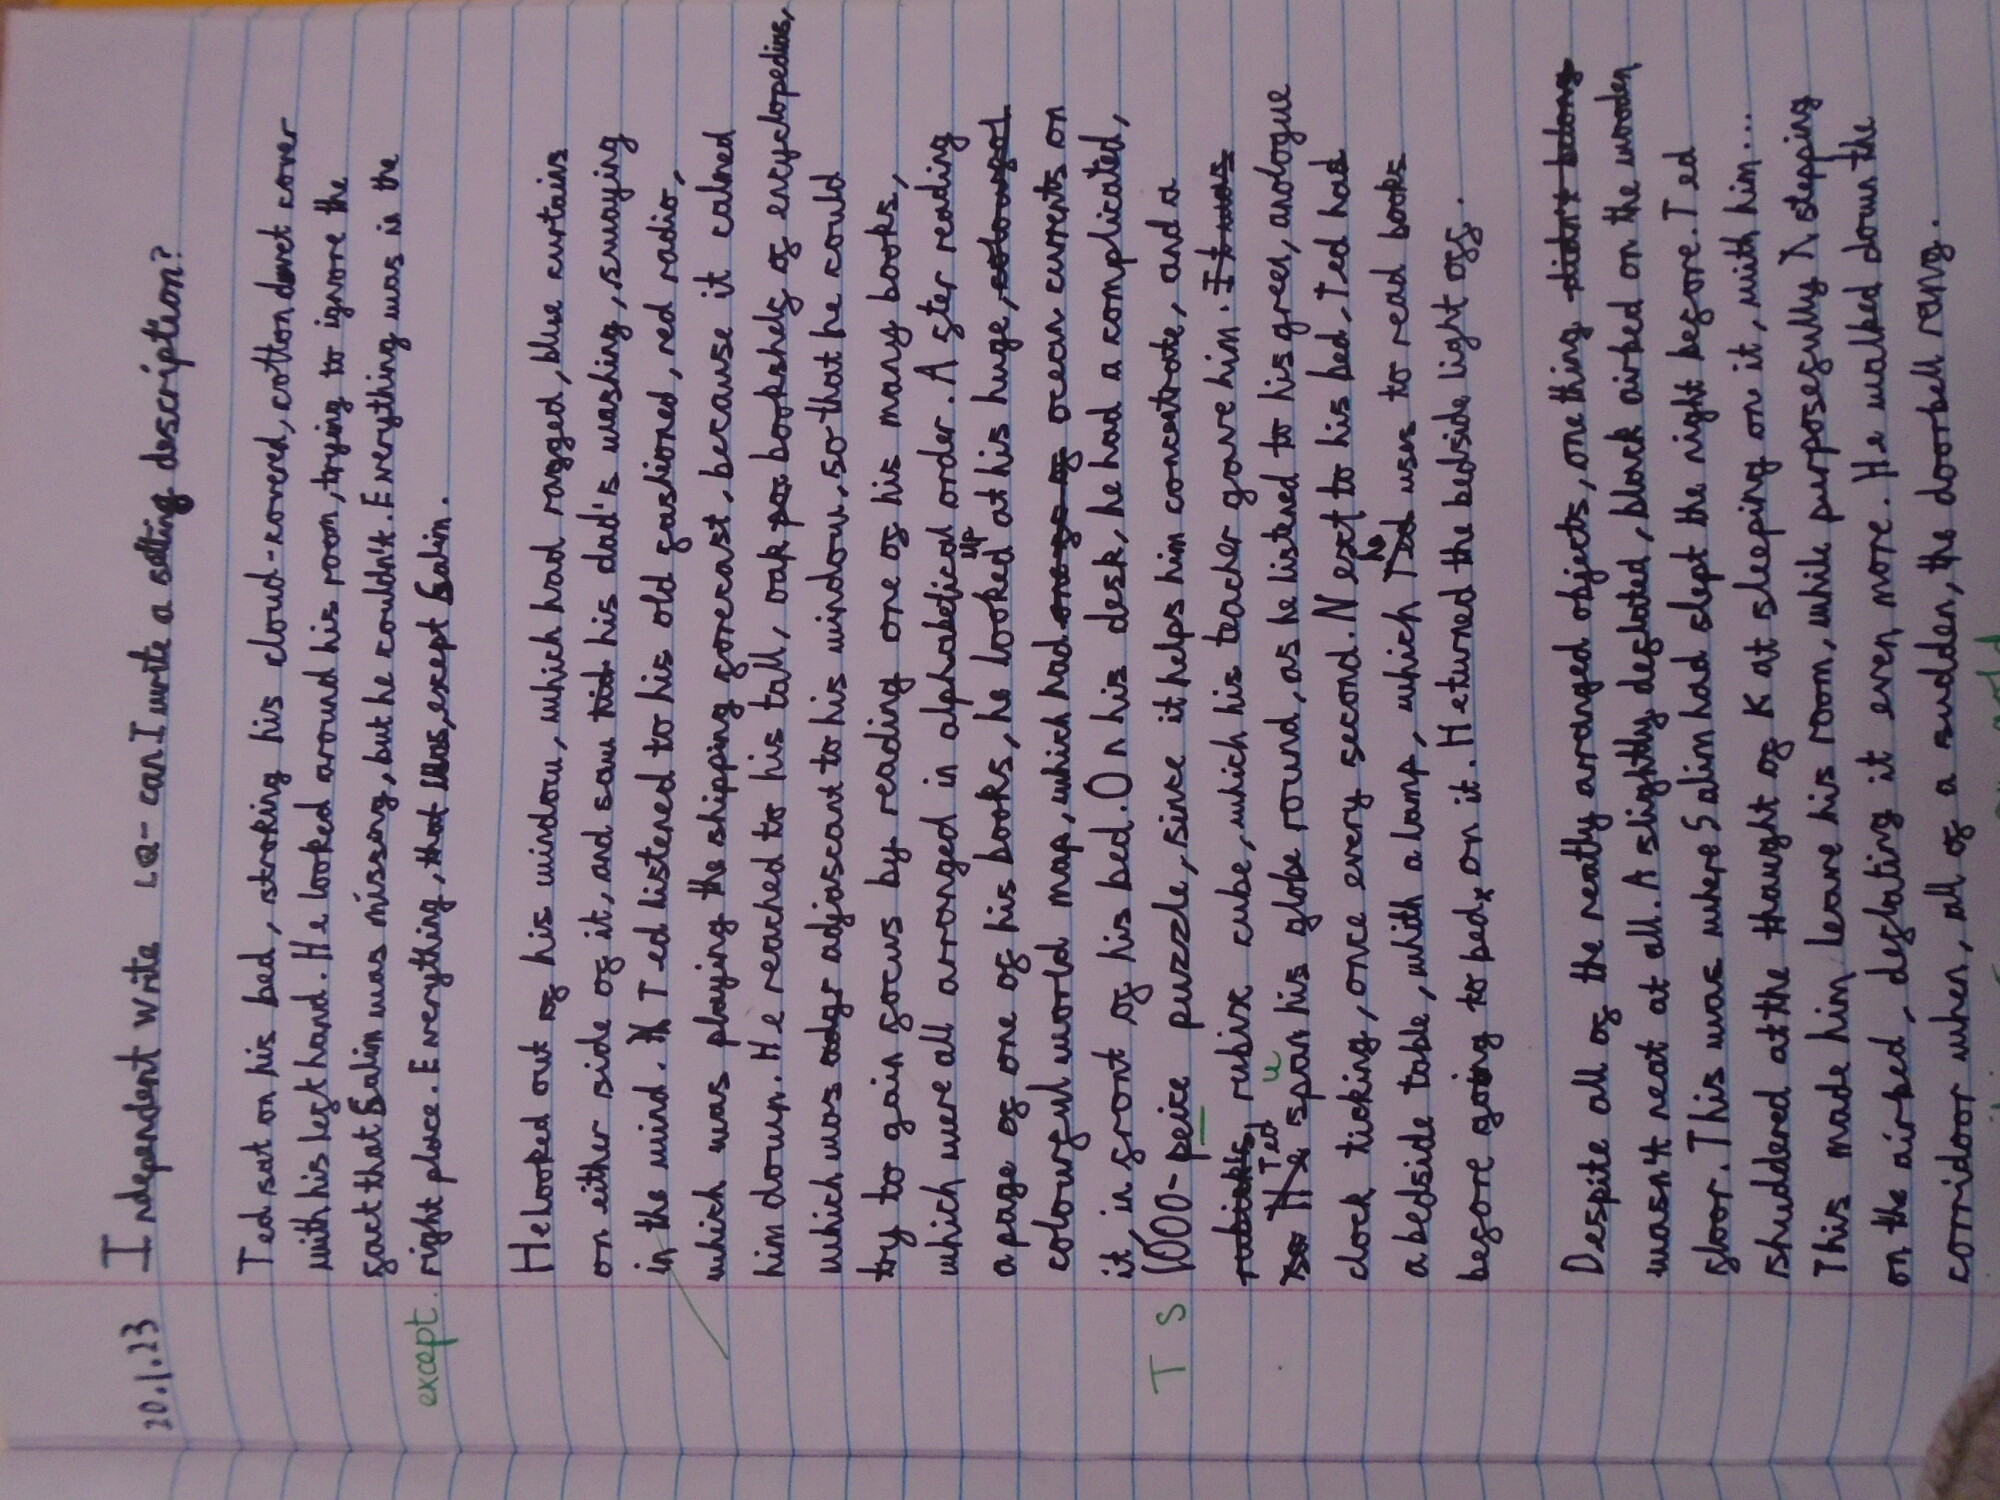 20.1.23 Independent Write LQ- can I write a setting description?
Ted sat on his bed, stroking his cloud-covered, cotton duvet cover
with his left hand. He looked around his room, trying to ignore the
fact that Salim was missing, but he couldn't. Everything was in the
except right place. Everything, that was, except Salim.
He looked out of his window, which had ragged, blue curtains
on either side of it, and saw his dad's washing, swaying
in the wind. Ted listened to his old fashioned, red radio,
which was playing the shipping forecast, because it calmed
him down. He reached to his tall, oak bookshelf of encyclopedias,
which was adjascant to his window, so that he could
try to gain focus by reading one of his many books,
which were all arranged in alphabetical order. After reading
a page of one of his books, he looked up at his huge, colourful
colourful world map, which had one of of ocean currents on
it, in front of his bed. On his desk, he had a complicated,
T S 1000-peice puzzle, since it helps him concetrate, and a
rubix cube, which his teacher gave him. It was
so He Ted span u his globe round, as he listened to his green, analogue
clock ticking, once every second. Next to his bed, Ted had
a bedside table, whith a lamp, which Ted he uses to read books
before going to bed, on it. He turned the bedside light off.
Despite all of the neatly arranged objects, one thing didn't belong
wasn't neat at all. A slightly deflated, black airbed on the wooden
floor. This was where Salim had slept the night before. Ted
shuddered at the thought of Kat sleeping on it, with him...
This made him leave his room, while purposefully stepping
on the airbed, deflating it even more. He walked down the
corridoor when, all of a sudden, the doorbell rang.